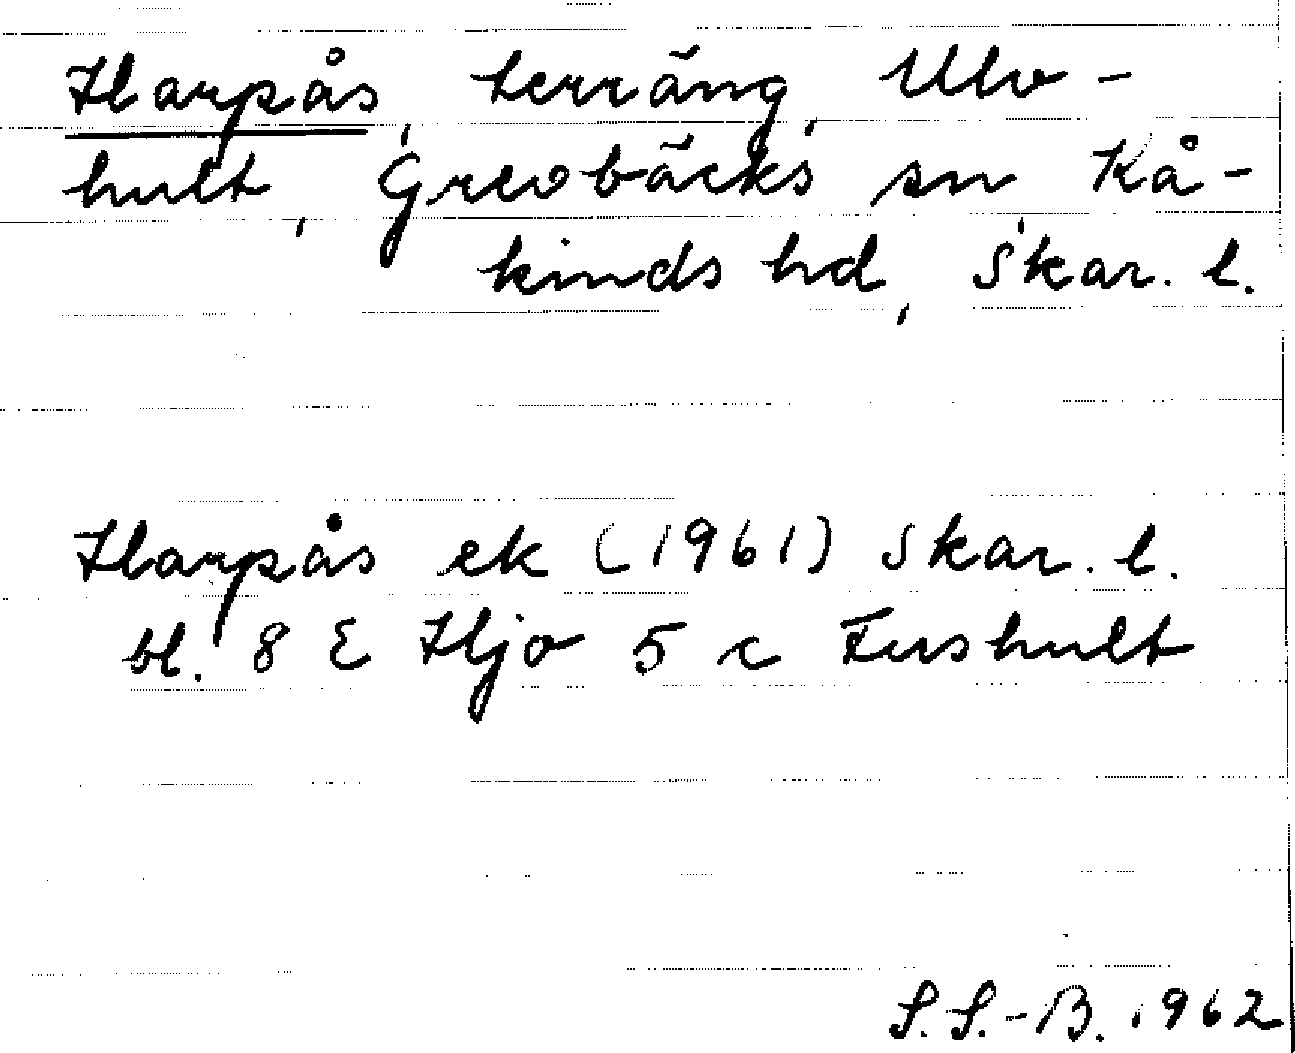 Harpås, terräng, Ulv-
hult, Grevbäcks sn, Kå-
kinds hd, Skar. l.
Harpås ek (1961) Skar. l.
bl. 8 E Hjo 5 c Fushult
S.S.-B. 1962